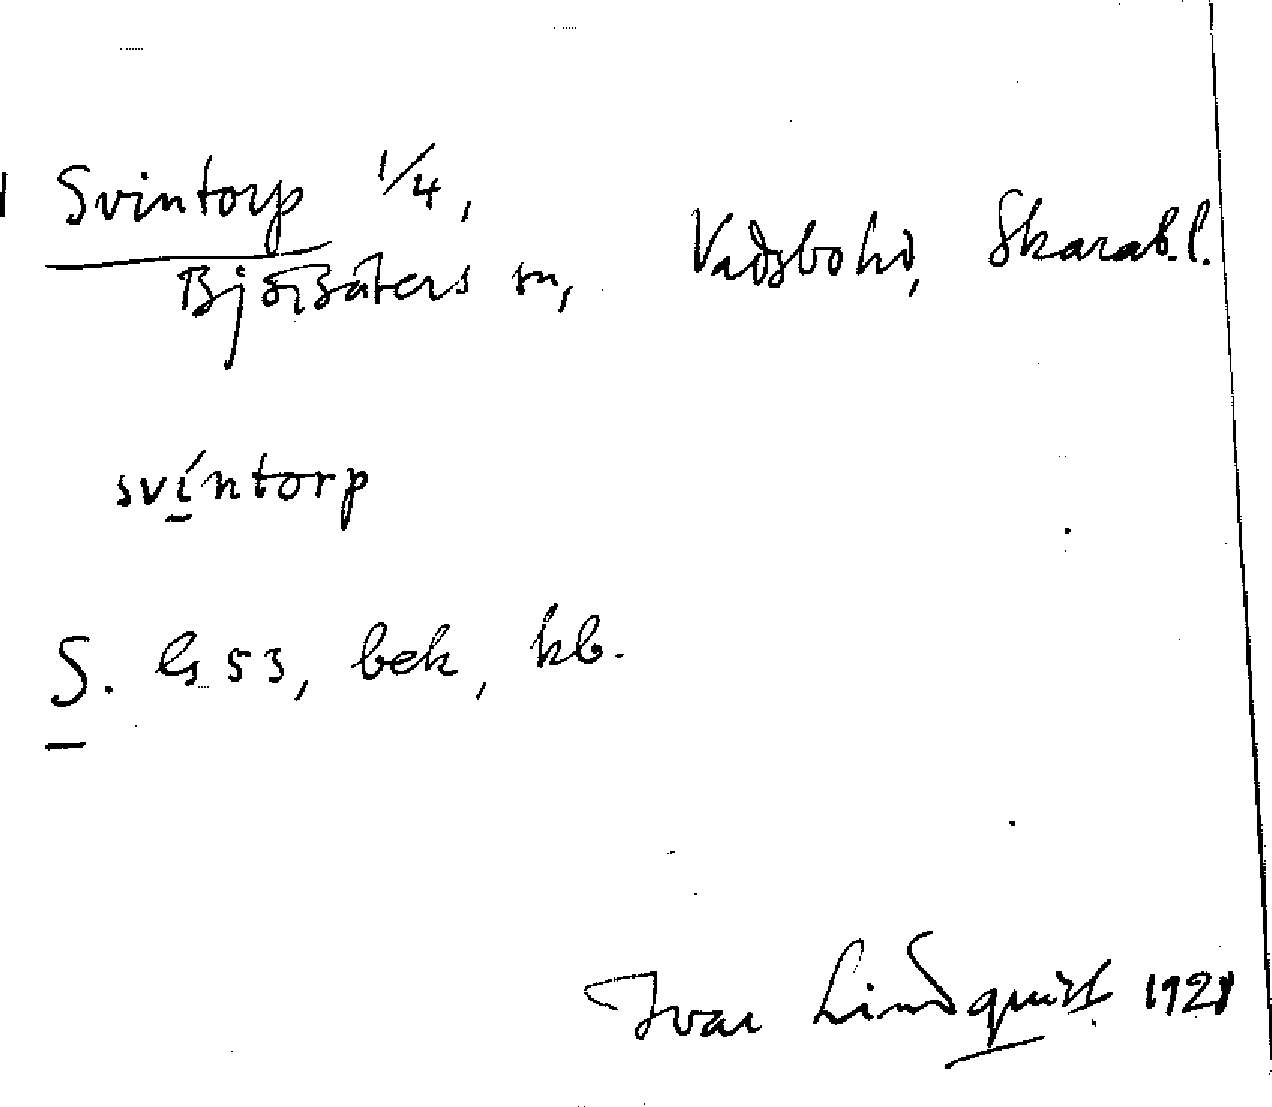 Svintorp 1/4,
Björsäters sn, Vadsbo hd, Skarab. l.
svíntorp
S. G 53, bek, kb.
Ivar Lindquist 1921